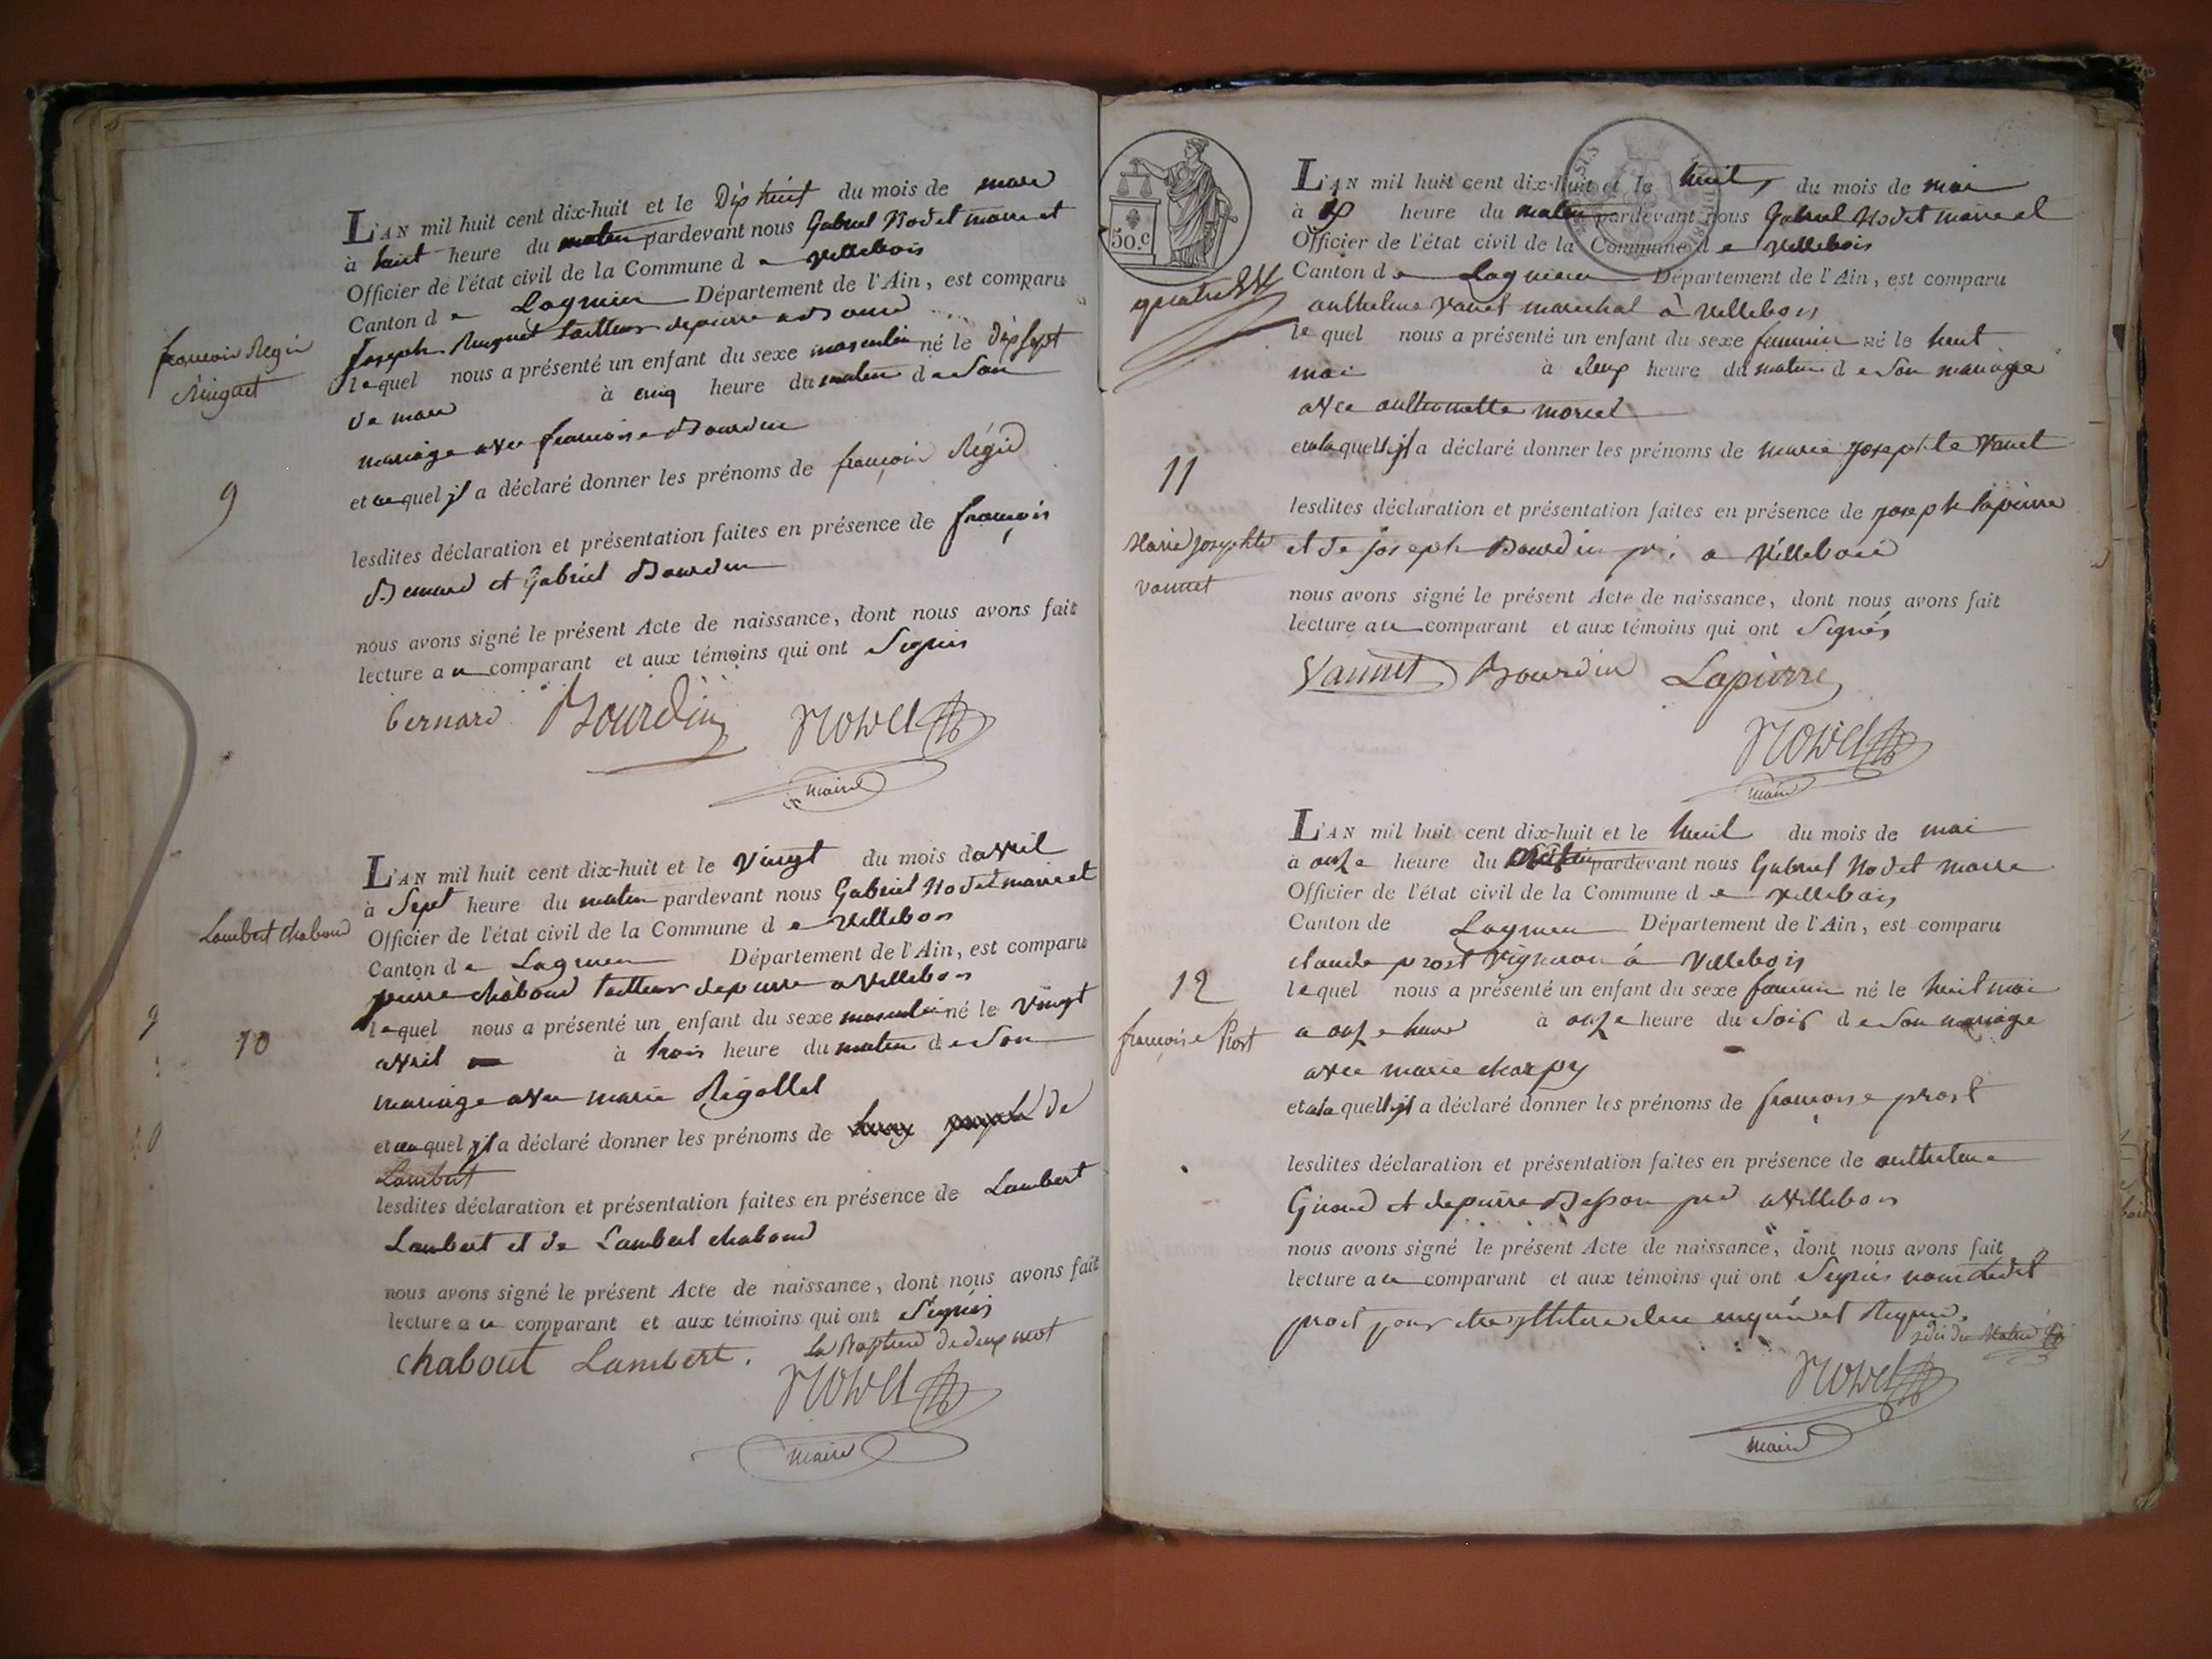 L'AN mil huit cent dix-huit et le Dix huit du mois de mars
à huit heure du matin pardevant nous Gabriel Nodet maire et
Officier de l'état civil de la Commune de Villebois
Canton de Lagnieu Département de l'Ain, est comparu
Joseph Ringuet tailleur de pierre
françois Régis
Ringuet
lequel nous a présenté un enfant du sexe masculin né le Dix sept
de mars à cinq heure du matin de Son
mariage avec françoise Bourdin
et auquel il a déclaré donner les prénoms de françois Régis
9
lesdites déclaration et présentation faites en présence de françois
Bernard et Gabriel Bourdin
nous avons signé le présent Acte de naissance, dont nous avons fait
lecture au comparant et aux témoins qui ont Signés
bernard Bourdin Nodet
maire
L'AN mil huit cent dix-huit et le Vingt du mois d'avril
à Sept heure du matin pardevant nous Gabriel Nodet maire et
Officier de l'état civil de la Commune de Villebois
Lambert chaboud
Canton de Lagnieu Département de l'Ain, est comparu
pierre chaboud tailleur de pierre a Villebois
lequel nous a présenté un enfant du sexe masculin né le Vingt
9
10
avril à trois heure du matin de Son
mariage avec marie Rigollet
et auquel il a déclaré donner les prénoms de de
Lambert
lesdites déclaration et présentation faites en présence de Lambert
Lambert et de Lambert chaboud
nous avons signé le présent Acte de naissance, dont nous avons fait
lecture au comparant et aux témoins qui ont Signés
chabout Lambert. La Rapture de deux mot
Nodet
maire
50.c
L'AN mil huit cent dix-huit et le huit, du mois de mai
à dix heure du matin pardevant nous Gabriel Nodet maire et
Officier de l'état civil de la Commune de Villebois
Canton de Lagnieu Département de l'Ain, est comparu
quatre
anthelme Vanet marechal à Villebois
lequel nous a présenté un enfant du sexe feminin né le huit
mai à deux heure du matin de Son mariage
avec anthelmette morcel
et a laquelle il a déclaré donner les prénoms de marie josephte Vanet
11
lesdites déclaration et présentation faites en présence de joseph lapierre
Marie josephte
vannet
et de joseph Bourdin a Villebois
nous avons signé le présent Acte de naissance, dont nous avons fait
lecture au comparant et aux témoins qui ont Signés
Vannet Bourdin Lapierre
Nodet
maire
L'AN mil huit cent dix-huit et le huit du mois de mai
à onze heure du matin pardevant nous Gabriel Nodet maire
Officier de l'état civil de la Commune de Villebois
Canton de Lagnieu Département de l'Ain, est comparu
claude prost Vigneron à Villebois
12
lequel nous a présenté un enfant du sexe feminin né le huit mai
françoise Prost
a onze heure à onze heure du Soir de Son mariage
avec marie charpy
et a laquelle il a déclaré donner les prénoms de françoise prost
lesdites déclaration et présentation faites en présence de anthelme
Girond et de pierre Besson a Villebois
nous avons signé le présent Acte de naissance, dont nous avons fait
lecture au comparant et aux témoins qui ont Signés non Ledit
prost pour être illitere de ce enquis et Requis.
Nodet
maire